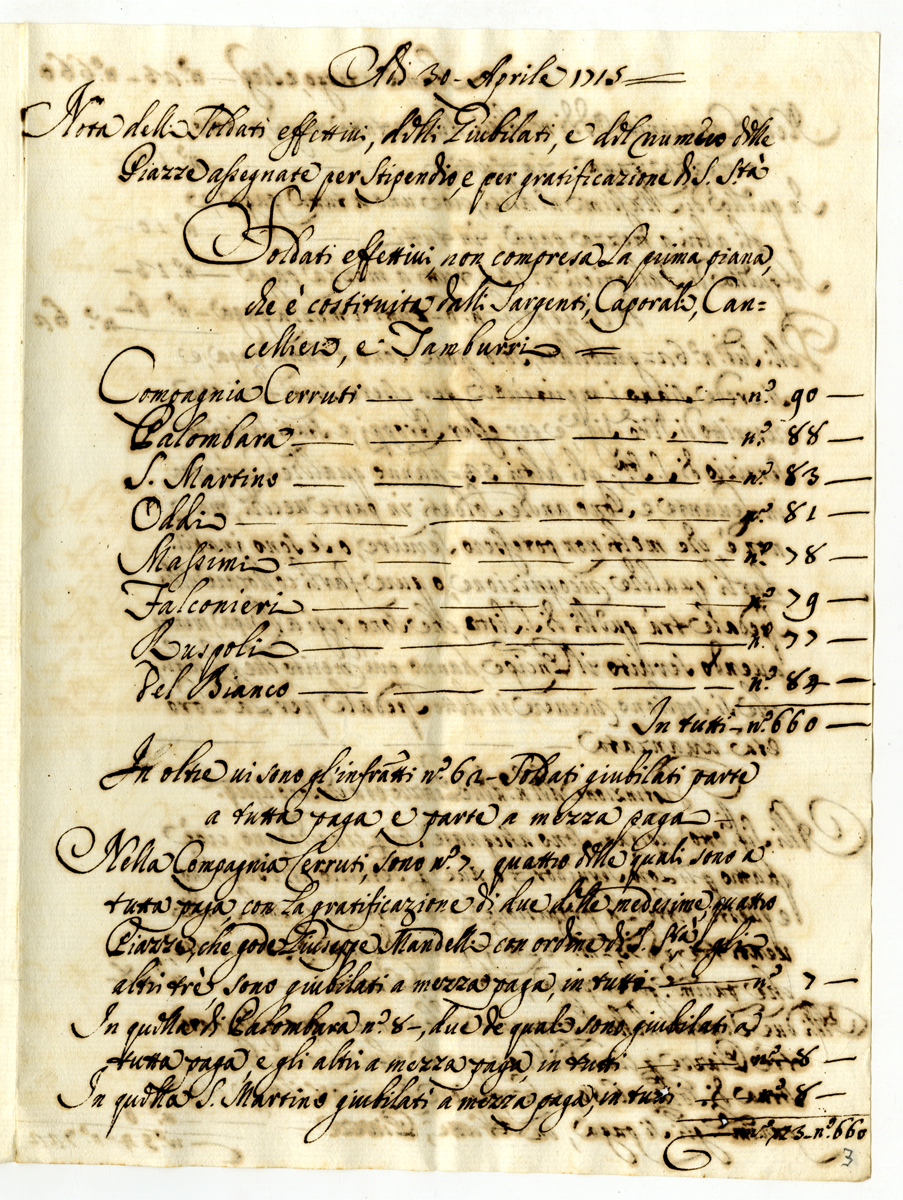 Adi 30 - Aprile 1715
Nota delli Soldati effettivi, delli Giubilati, e del numero delle
Piazze assegnate per stipendio, e per gratificazione di S. S.tà
Soldati effettivi, non compresa La prima piana,
che è costituita dalli Sargenti, Caporali, Can=
cellieri, e Tamburri =
Compagnia Cerruti — n.o 90 —
Palombara — n.o 88 —
S. Martino — n.o 83 —
Oddi — n.o 81 —
Massimi — n.o 78 —
Falconieri — n.o 79 —
Ruspoli — n.o 77 —
Del Bianco — n.o 84 —
In tutti - n.o 660 —
In oltre vi sono gl'infratti n.o 62 - Soldati giubilati parte
a tutta paga e parte a mezza paga —
Nella Compagnia Cerruti, sono n.o 7, quattro delle quali sono a
tutta paga, con la gratificazione di due delle medesime quattro
Piazze, che gode Giuseppe Mandelli con ordine di S. S.tà, gli
altri trè sono giubilati a mezza paga, in tutti — n.o 7 —
In quella di Palombara n.o 8 -, due de quali sono giubilati a
tutta paga, e gli altri a mezza paga, in tutti — n.o 8 —
In quella S. Martino giubilati a mezza paga, in tutti — n.o 8 —
n.o 23 - n.o 660
3